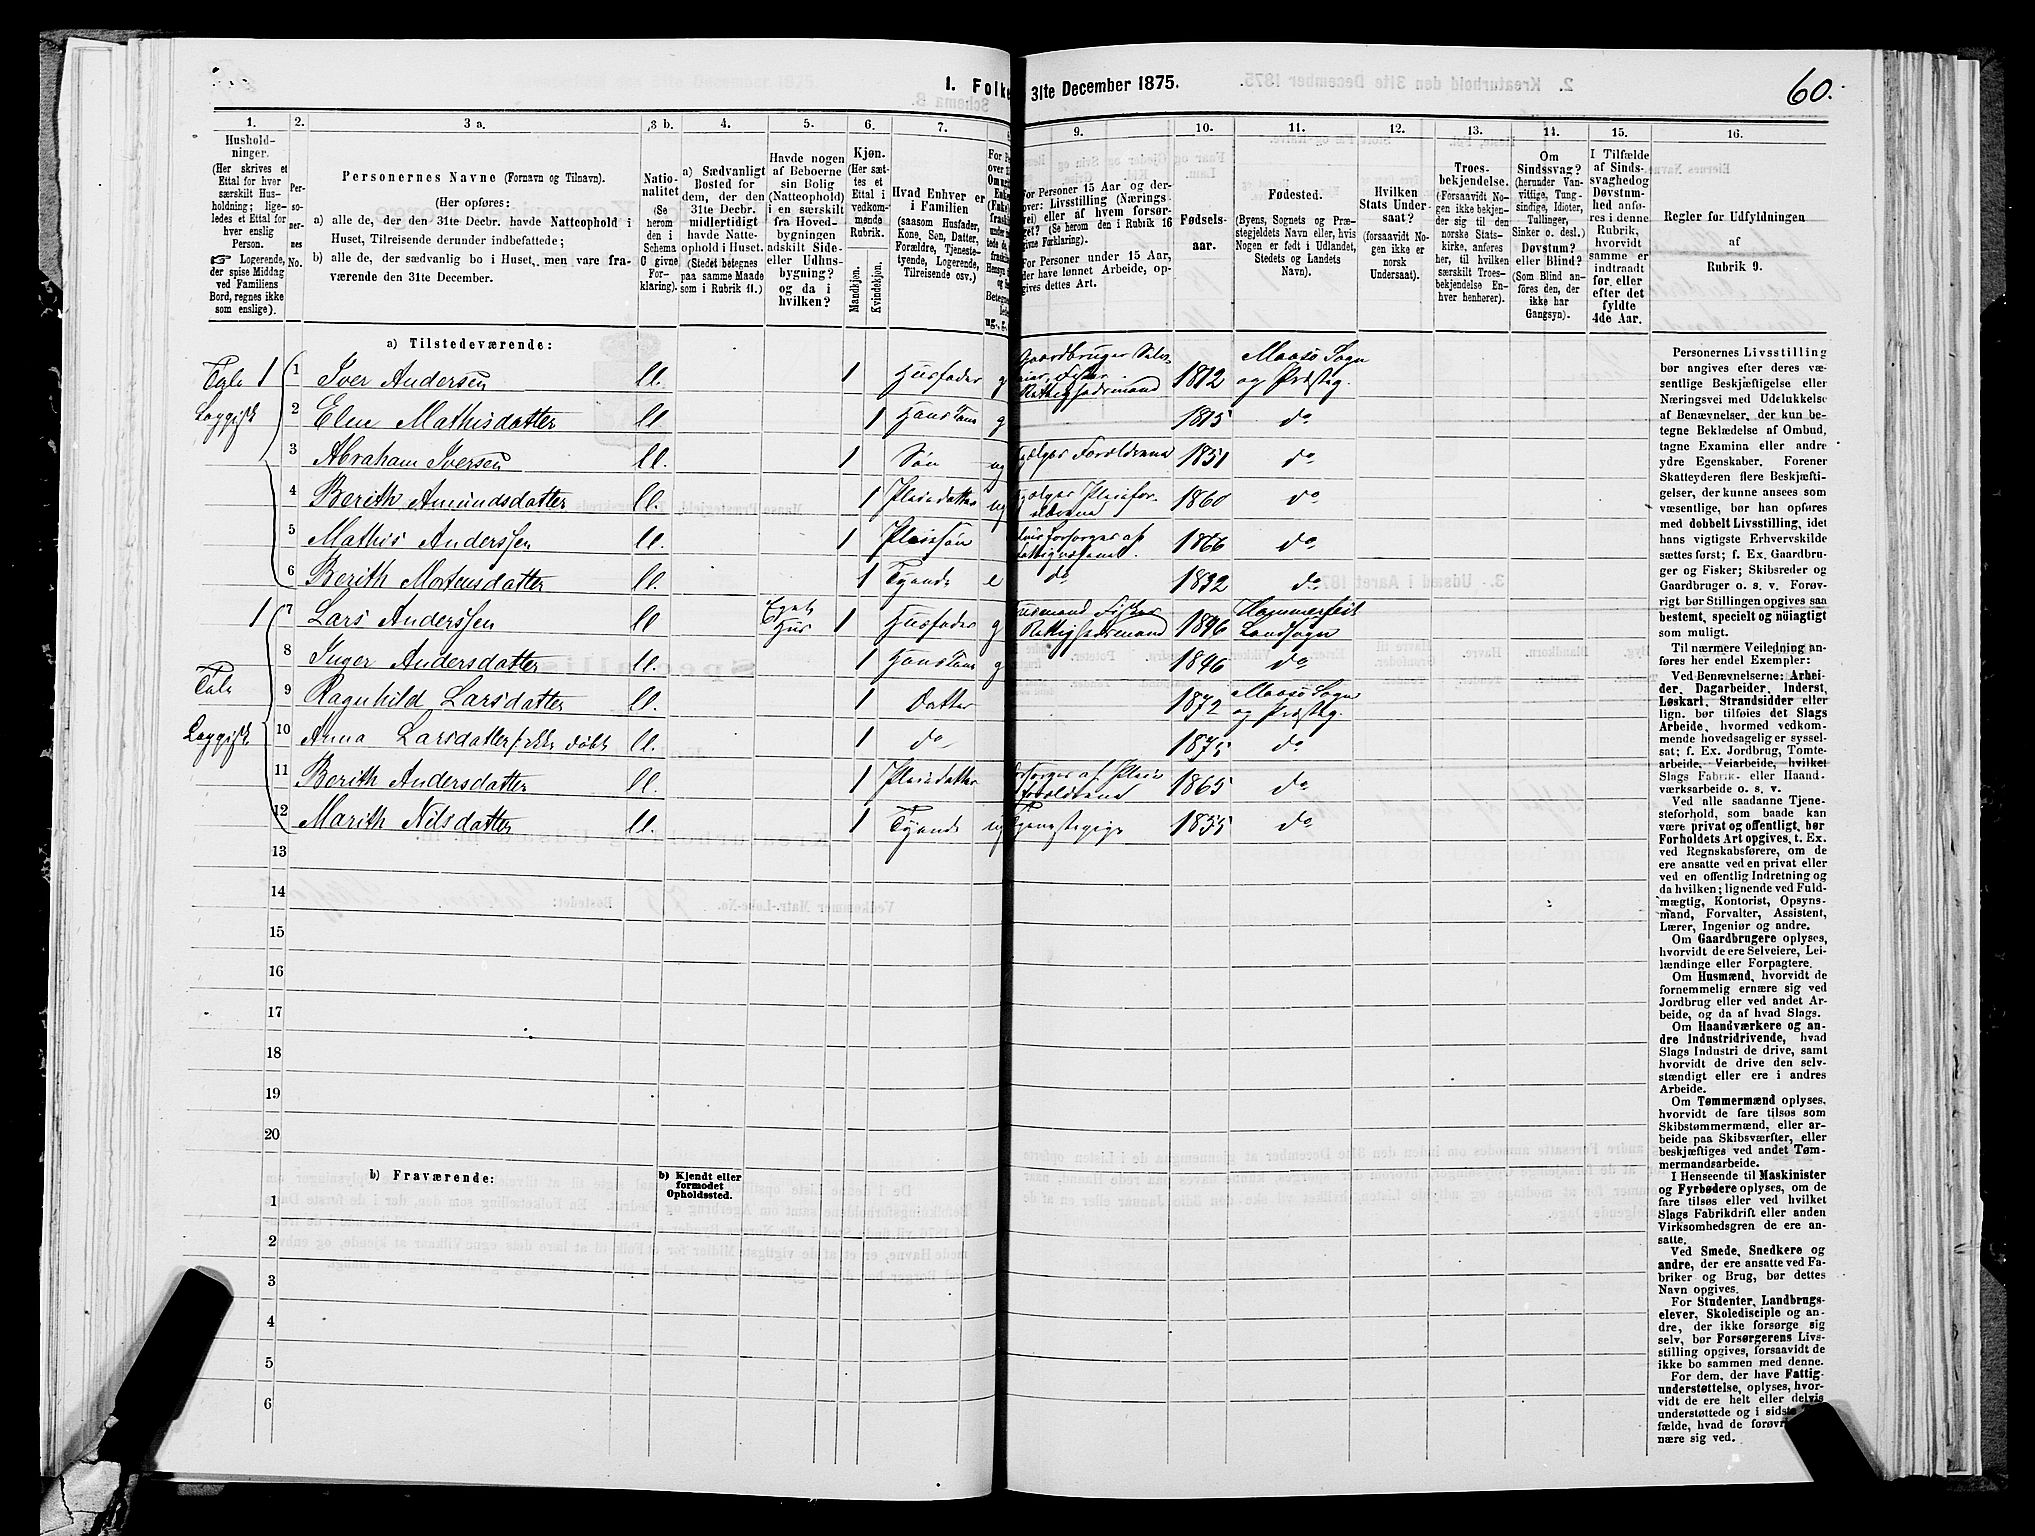 60.
1. Folke 31te December 1875.
1. 2. 3 a. 3 b. 4. 5. 6. 7. 9. 10. 11. 12. 13. 14. 15. 16.
Hushold-
ninger.
(Her skrives et
Ettal for hver
særskilt Hus-
holdning; lige-
ledes et Ettal for
hver enslig
Person.
☞ Logerende,
der spise Middag
ved Familiens
Bord, regnes ikke
som enslige).
Per-
so-
ner-
nes
No.
Personernes Navne (Fornavn og Tilnavn).
(Her opføres:
a) alle de, der den 31te Decbr. havde Natteophold i
Huset, Tilreisende derunder indbefattede;
b) alle de, der sædvanlig bo i Huset, men vare fra-
værende den 31te December.
Natio-
nalitet
(Se
herom
den i
Schema
C givne
For-
klaring).
a) Sædvanligt
Bosted for
dem, der den
31te Decbr.
midlertidigt
havde Natte-
ophold i Huset.
(Stedet betegnes
paa samme Maade
som i Rubrik 11.)
Havde nogen
af Beboerne
sin Bolig
(Natteophold)
i en særskilt
fra Hoved-
bygningen
adskilt Side-
eller Udhus-
bygning?
og da i
hvilken?
Kjøn.
(Her sæt-
tes et
Ettal i
vedkom-
mende
Rubrik.
Mandkjøn.
Kvindekjøn.
Hvad Enhver er
i Familien
(saasom Husfader,
Kone, Søn, Datter,
Forældre, Tjeneste-
tyende, Logerende,
Tilreisende osv.)
For Personer 15 Aar og der-
over: Livsstilling (Nærings-
vei) eller af hvem forsør-
get? (Se herom den i Rubrik 16
givne Forklaring).
For Personer under 15 Aar,
der have lønnet Arbeide, op-
gives dettes Art.
Fødsels-
aar.
Fødested.
(Byens, Sognets og Præ-
stegjeldets Navn eller, hvis
Nogen er født i Udlandet,
Stedets og Landets
Navn).
Hvilken
Stats Under-
saat?
(forsaavidt No-
gen ikke er
norsk
Undersaat).
Troes-
bekjendelse.
(Forsaavidt No-
gen ikke bekjen-
der sig til den
norske Stats-
kirke, anføres
her, til hvilken
særskilt Troes-
bekjendelse En-
hver henhører).
Om
Sindssvag?
(herunder Van-
vittige, Tung-
sindige, Idioter,
Tullinger,
Sinker o. desl.)
Døvstum?
eller Blind?
(Som Blind an-
føres den, der
ikke har
Gangsyn).
I Tilfælde
af Sinds-
svaghed og
Døvstum-
hed anfø-
res i denne
Rubrik,
hvorvidt
samme er
indtraadt
før eller
efter det
fyldte
4de Aar.
Regler for Udfyldningen
af
Rubrik 9.
a) Tilstedeværende:
1 1 Iver Andersen ll. 1 Husfader g Gaardbruger Selv- eier, Fisker Rettighedsmand 1812 Maasø Sogn og Præsteg.
2 Elen Mathisdatter ll 1 Hans Kone g 1815 do
3 Abraham Iversen ll. 1 Søn ug hjælper Forældrene 1851 do
4 Berith Amundsdatter ll. 1 Pleiedatter ug hjælper Pleiefor- ældrene 1860 do
5 Mathis Anderssen ll. 1 Pleiesøn forsørges af Fattigvæsenet 1866 do
6 Berith Mortensdatter ll. 1 Tyende e do 1832 do
1 7 Lars Anderssen ll Eget Hus 1 Husfader g Husmand Fisker Rettighedsmand 1846 Hammerfest Landsogn
8 Inger Andersdatter ll. 1 Hans Kone g 1846 do
9 Ragnhild Larsdatter ll. 1 Datter 1872 Maasø Sogn og Præsteg.
10 Anna Larsdatter ikke døbt ll. 1 do 1875 do
11 Berith Andersdatter ll. 1 Pleiedatter forsørges af Pleie forældrene 1865 do
12 Marith Nilsdatter ll. 1 Tyende ug Tjenestepige 1835 do
13
14
15
16
17
18
19
20
b) Fraværende:
b) Kjendt eller
formodet
Opholdssted.
1
2
3
4
5
6
Personernes Livsstilling
bør angives efter deres væ-
sentlige Beskjæftigelse eller
Næringsvei med Udelukkelse
af Benævnelser, der kun be-
tegne Beklædelse af Ombud,
tagne Examina eller andre
ydre Egenskaber. Forener
Skatteyderen flere Beskjæfti-
gelser, der kunne ansees som
væsentlige, bør han opføres
med dobbelt Livsstilling, idet
hans vigtigste Erhvervskilde
sættes først; f. Ex. Gaardbru-
ger og Fisker; Skibsreder og
Gaardbruger o. s. v. Forøv-
rigt bør Stillingen opgives saa
bestemt, specielt og nöiagtigt
som muligt.
Til nærmere Veiledning an-
føres her endel Exempler:
Ved Benævnelserne: Arbei-
der, Dagarbeider, Inderst,
Løskarl, Strandsidder eller
lign. bør tilføies det Slags
Arbeide, hvormed vedkom-
mende hovedsagelig er syssel-
sat; f. Ex. Jordbrug, Tomte-
arbeide, Veiarbeide, hvilket
Slags Fabrik- eller Haand-
værksarbeide o. s. v.
Ved alle saadanne Tjene-
steforhold, som baade kan
være privat og offentligt, bør
Forholdets Art opgives, t. Ex.
ved Regnskabsførere, om de
ere ansatte ved en privat eller
ved en offentlig Indretning og
da hvilken; lignende ved Fuld-
mægtig, Kontorist, Opsyns-
mand, Forvalter, Assistent,
Lærer, Ingeniør og andre.
Om Gaardbrugere oplyses,
hvorvidt de ere Selveiere, Lei-
lændinge eller Forpagtere.
Om Husmænd, hvorvidt de
fornemmelig ernære sig ved
Jordbrug eller ved andet Ar-
beide, og da af hvad Slags.
Om Haandværkere og an-
dre Industridrivende, hvad
Slags Industri de drive, samt
hvorvidt de drive den selv-
stændigt eller ere i andres
Arbeide.
Om Tømmermænd oplyses,
hvorvidt de fare tilsøs som
Skibstømmermænd, eller ar-
beide paa Skibsværfter, eller
beskjæftiges ved andet Tøm-
mermandsarbeide.
I Henseende til Maskinister
og Fyrbødere oplyses, om de
fare tilsøs eller ved hvilket
Slags Fabrikdrift eller anden
Virksomhedsgren de ere an-
satte.
Ved Smede, Snedkere og
andre, der ere ansatte ved Fa-
briker og Brug, bør dettes
Navn opgives.
For Studenter, Landbrugs-
elever, Skoledisciple og an-
dre, der ikke forsørge sig
selv, bør Forsørgerens Livs-
stilling opgives, forsaavidt de
ikke bo sammen med denne.
For dem, der have Fattig-
understøttelse, oplyses, hvor-
vidt de ere helt eller delvis
understøttede og i sidste
fælde, hvad de forøvr
nære sig ved.